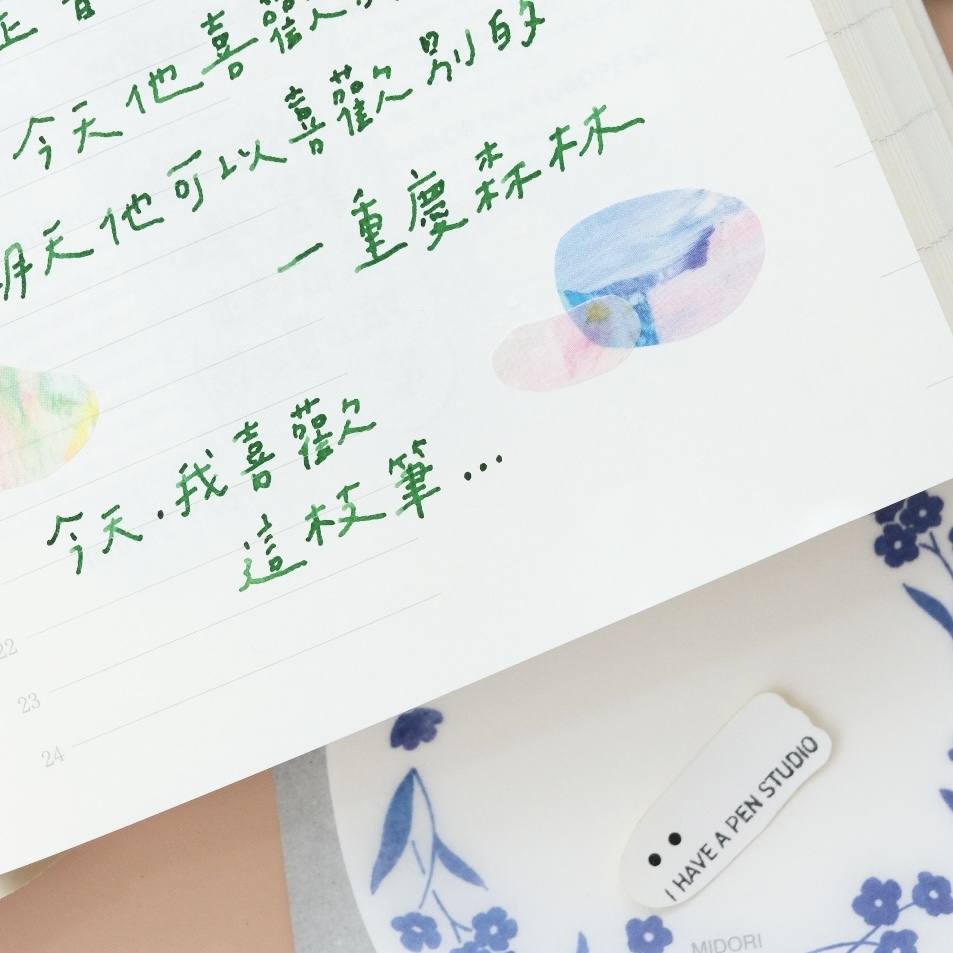 今天他喜歡
明天他可以喜歡別的
一重慶森林
今天.我喜歡
這枝筆...
22
23
24
I HAVE A PEN STUDIO
MIDORI